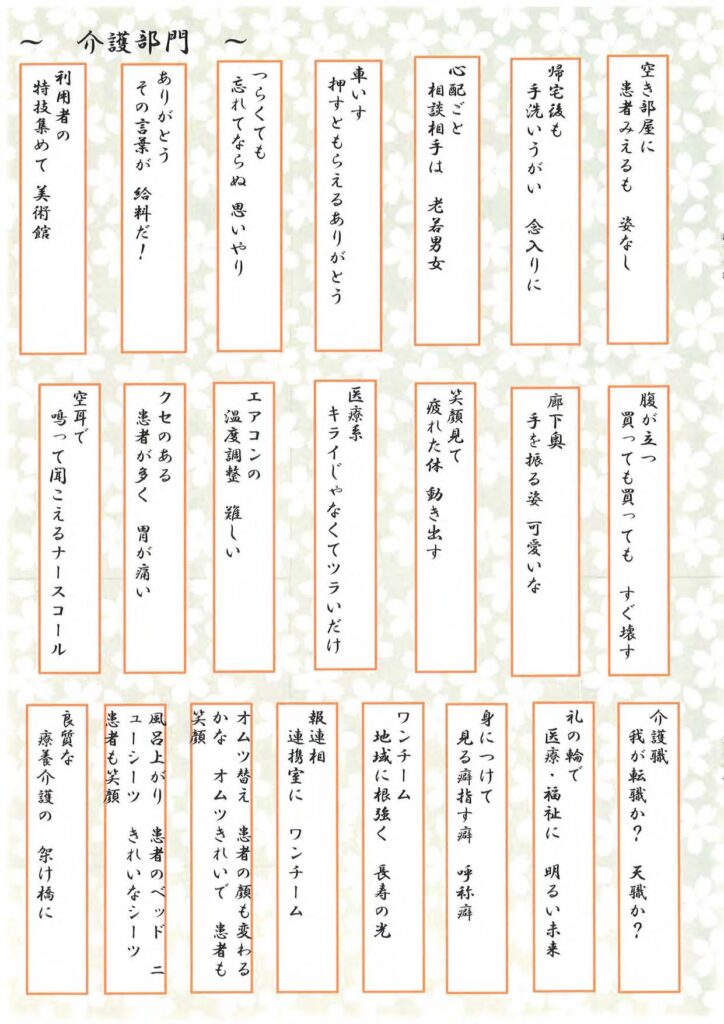 ～　介護部門　～
空き部屋に
患者みえるも　姿なし
帰宅後も
手洗いうがい　念入りに
心配ごと
相談相手は　老若男女
車いす
押すともらえるありがとう
つらくても
忘れてならぬ　思いやり
ありがとう
その言葉が　給料だ！
利用者の
特技集めて　美術館
腹が立つ
買っても買っても　すぐ壊す
廊下奥
手を振る姿　可愛いな
笑顔見て
疲れた体　動き出す
医療系
キライじゃなくてツラいだけ
エアコンの
温度調整　難しい
クセのある
患者が多く　胃が痛い
空耳で
鳴って聞こえるナースコール
介護職
我が転職か？　天職か？
礼の輪で
医療・福祉に　明るい未来
身につけて
見る癖指す癖　呼称癖
ワンチーム
地域に根強く　長寿の光
報連相
連携室に　ワンチーム
オムツ替え　患者の顔も変わる
かな　オムツきれいで　患者も
笑顔
風呂上がり　患者のベッド　ニ
ューシーツ　きれいなシーツ
患者も笑顔
良質な
療養介護の　架け橋に